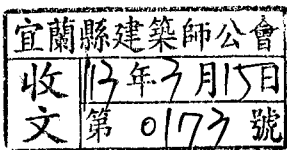 宜蘭縣建築師公會
收文
113年3月15日
第0173號